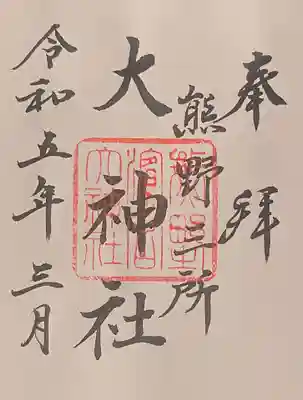 奉拝
熊野三所
大神社
令和五年三月